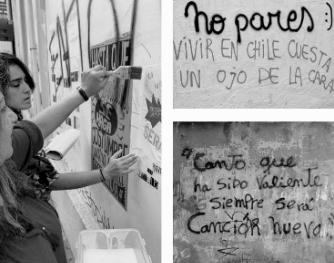 no pares :)
VIVIR EN CHILE CUESTA
UN OJO DE LA CARA
"Canto que
ha sido valiente
siempre será
Canción nueva...
SERÁ